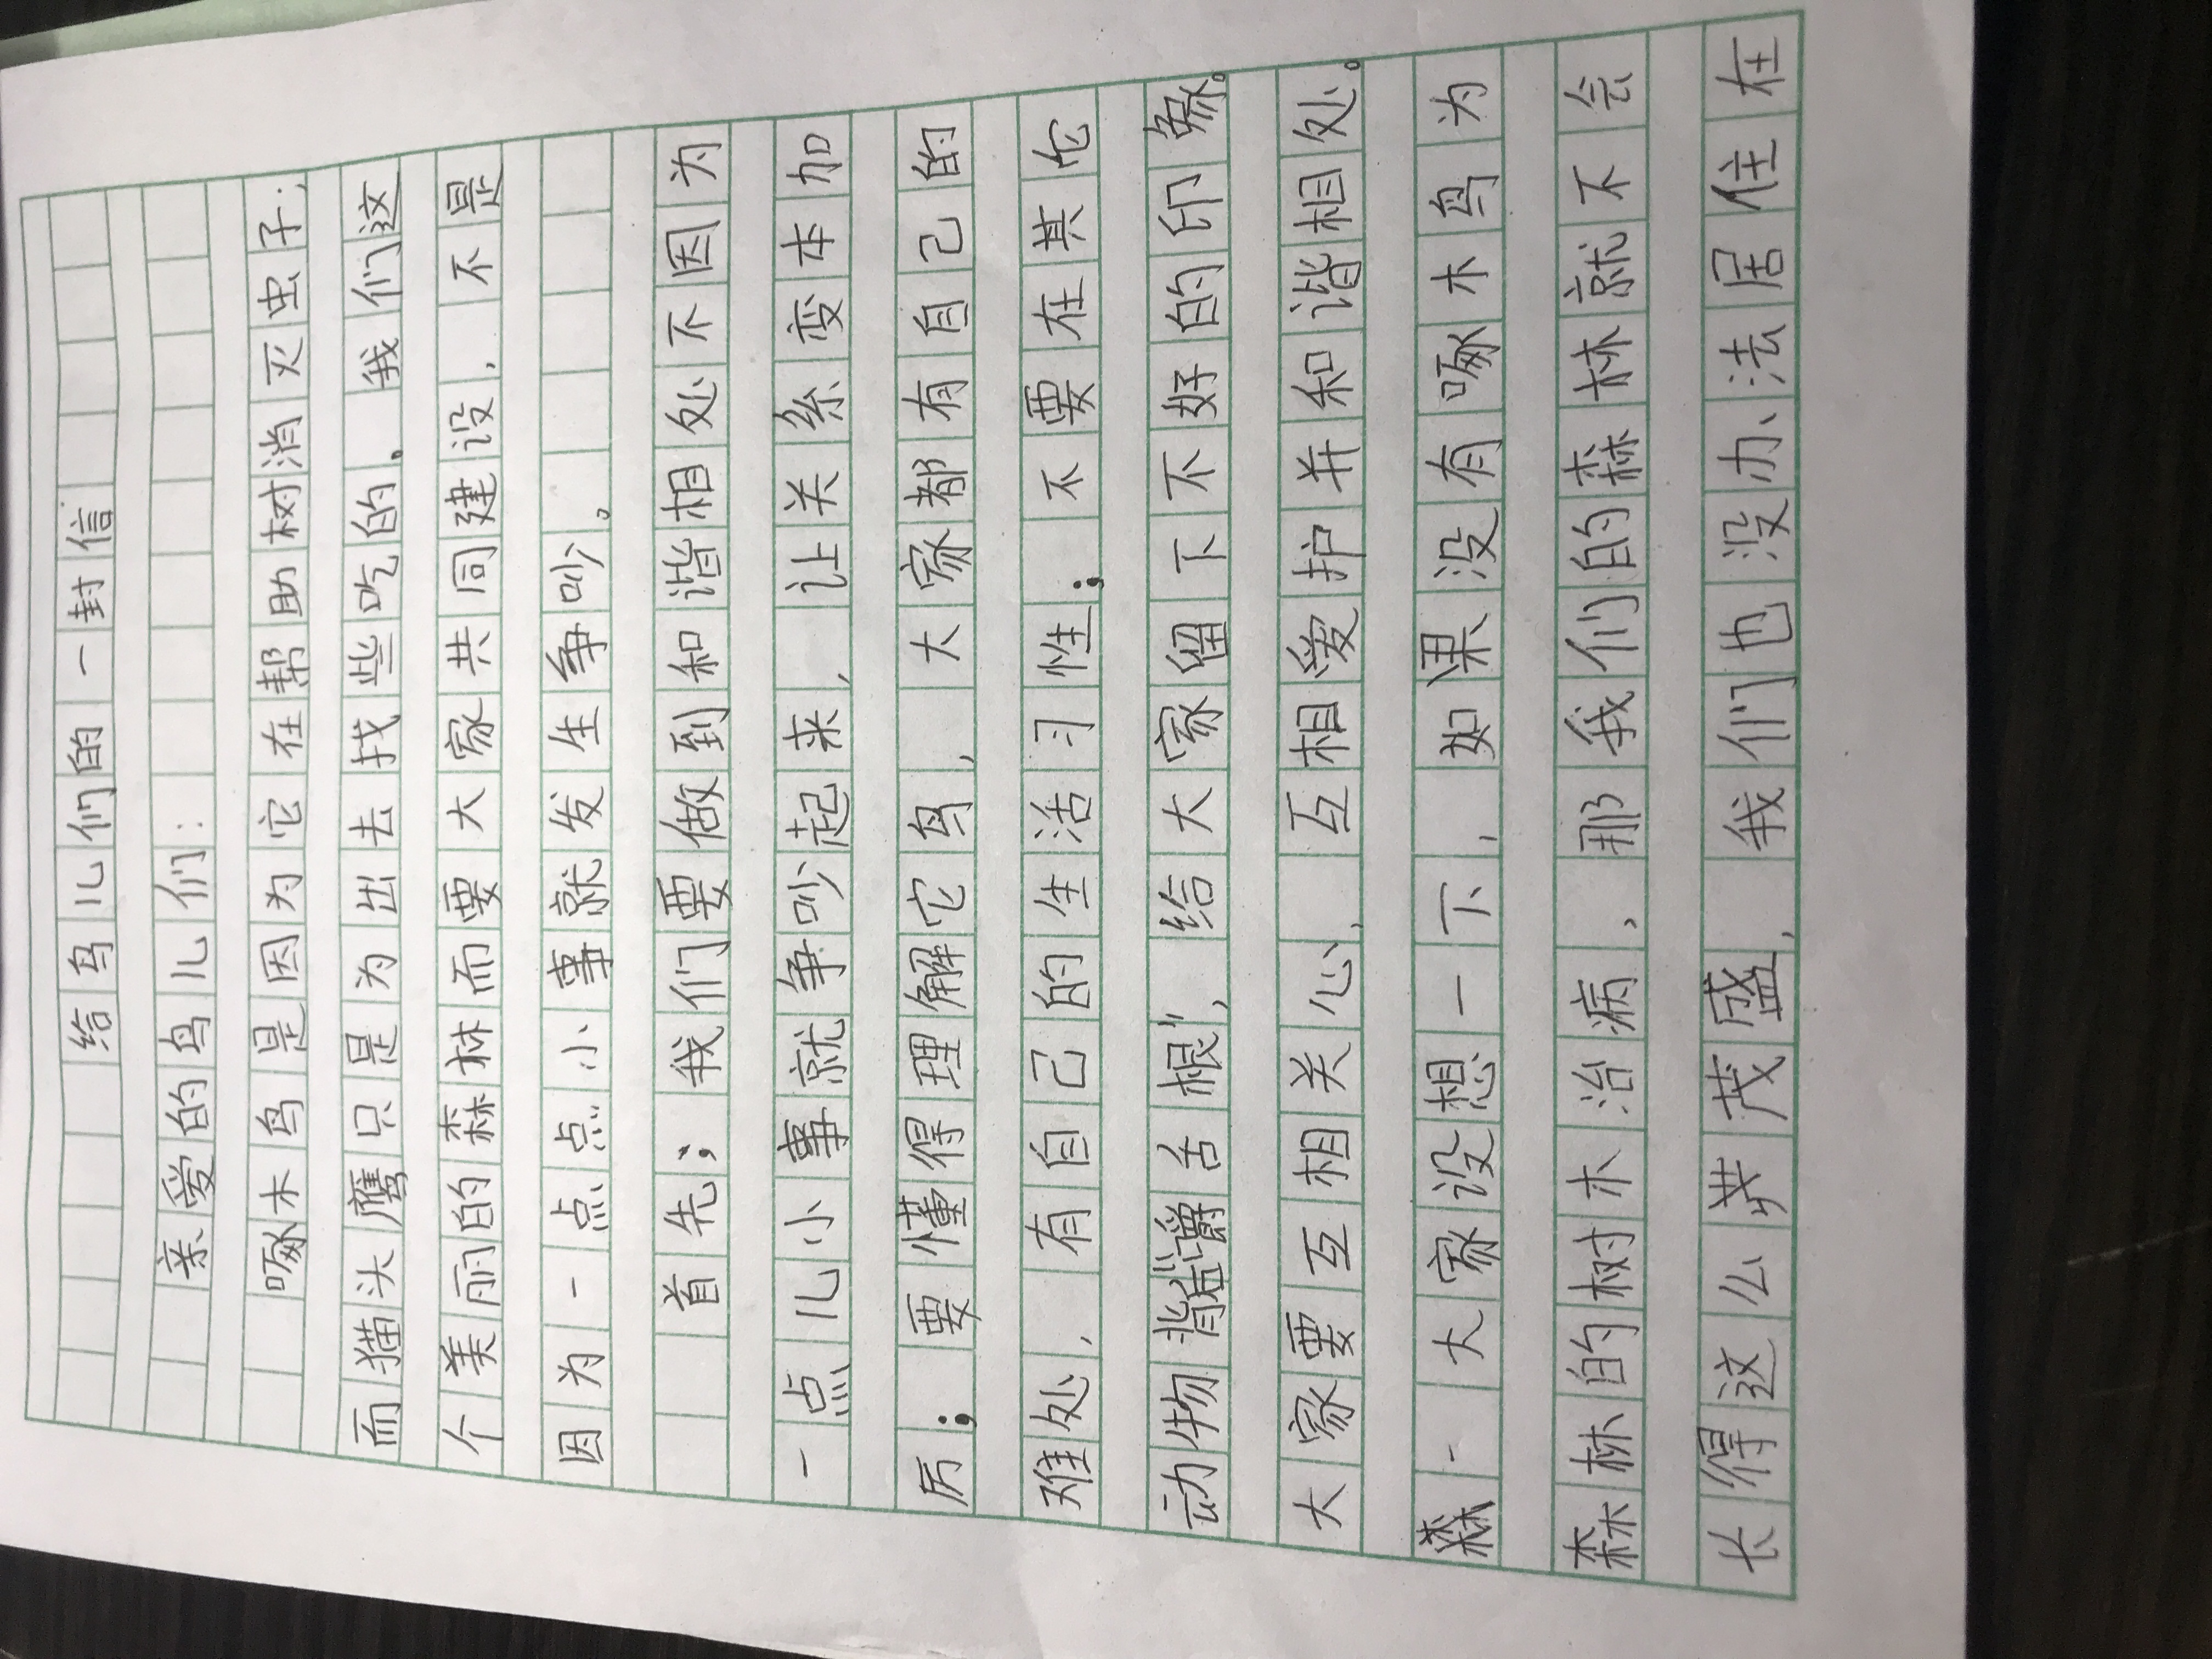 给鸟儿们的一封信
亲爱的鸟儿们:
啄木鸟是因为它在帮助树消灭虫子;
而猫头鹰只是为出去找些吃的。我们这
个美丽的森林而要大家共同建设,不是
因为一点点小事就发生争吵。
首先;我们要做到和谐相处不因为
一点儿小事就争吵起来,让关系变本加
厉;要懂得理解它鸟,大家都有自己的
难处,有自己的生活习性;不要在其它
动物背后嚼舌根",给大家留下不好的印象。
大家要互相关心、互相爱护并和谐相处。
大家设想一下,如果没有啄木鸟为
森林的树木治病,那我们的森林就不会
长得这么茂盛,我们也没办法居住在